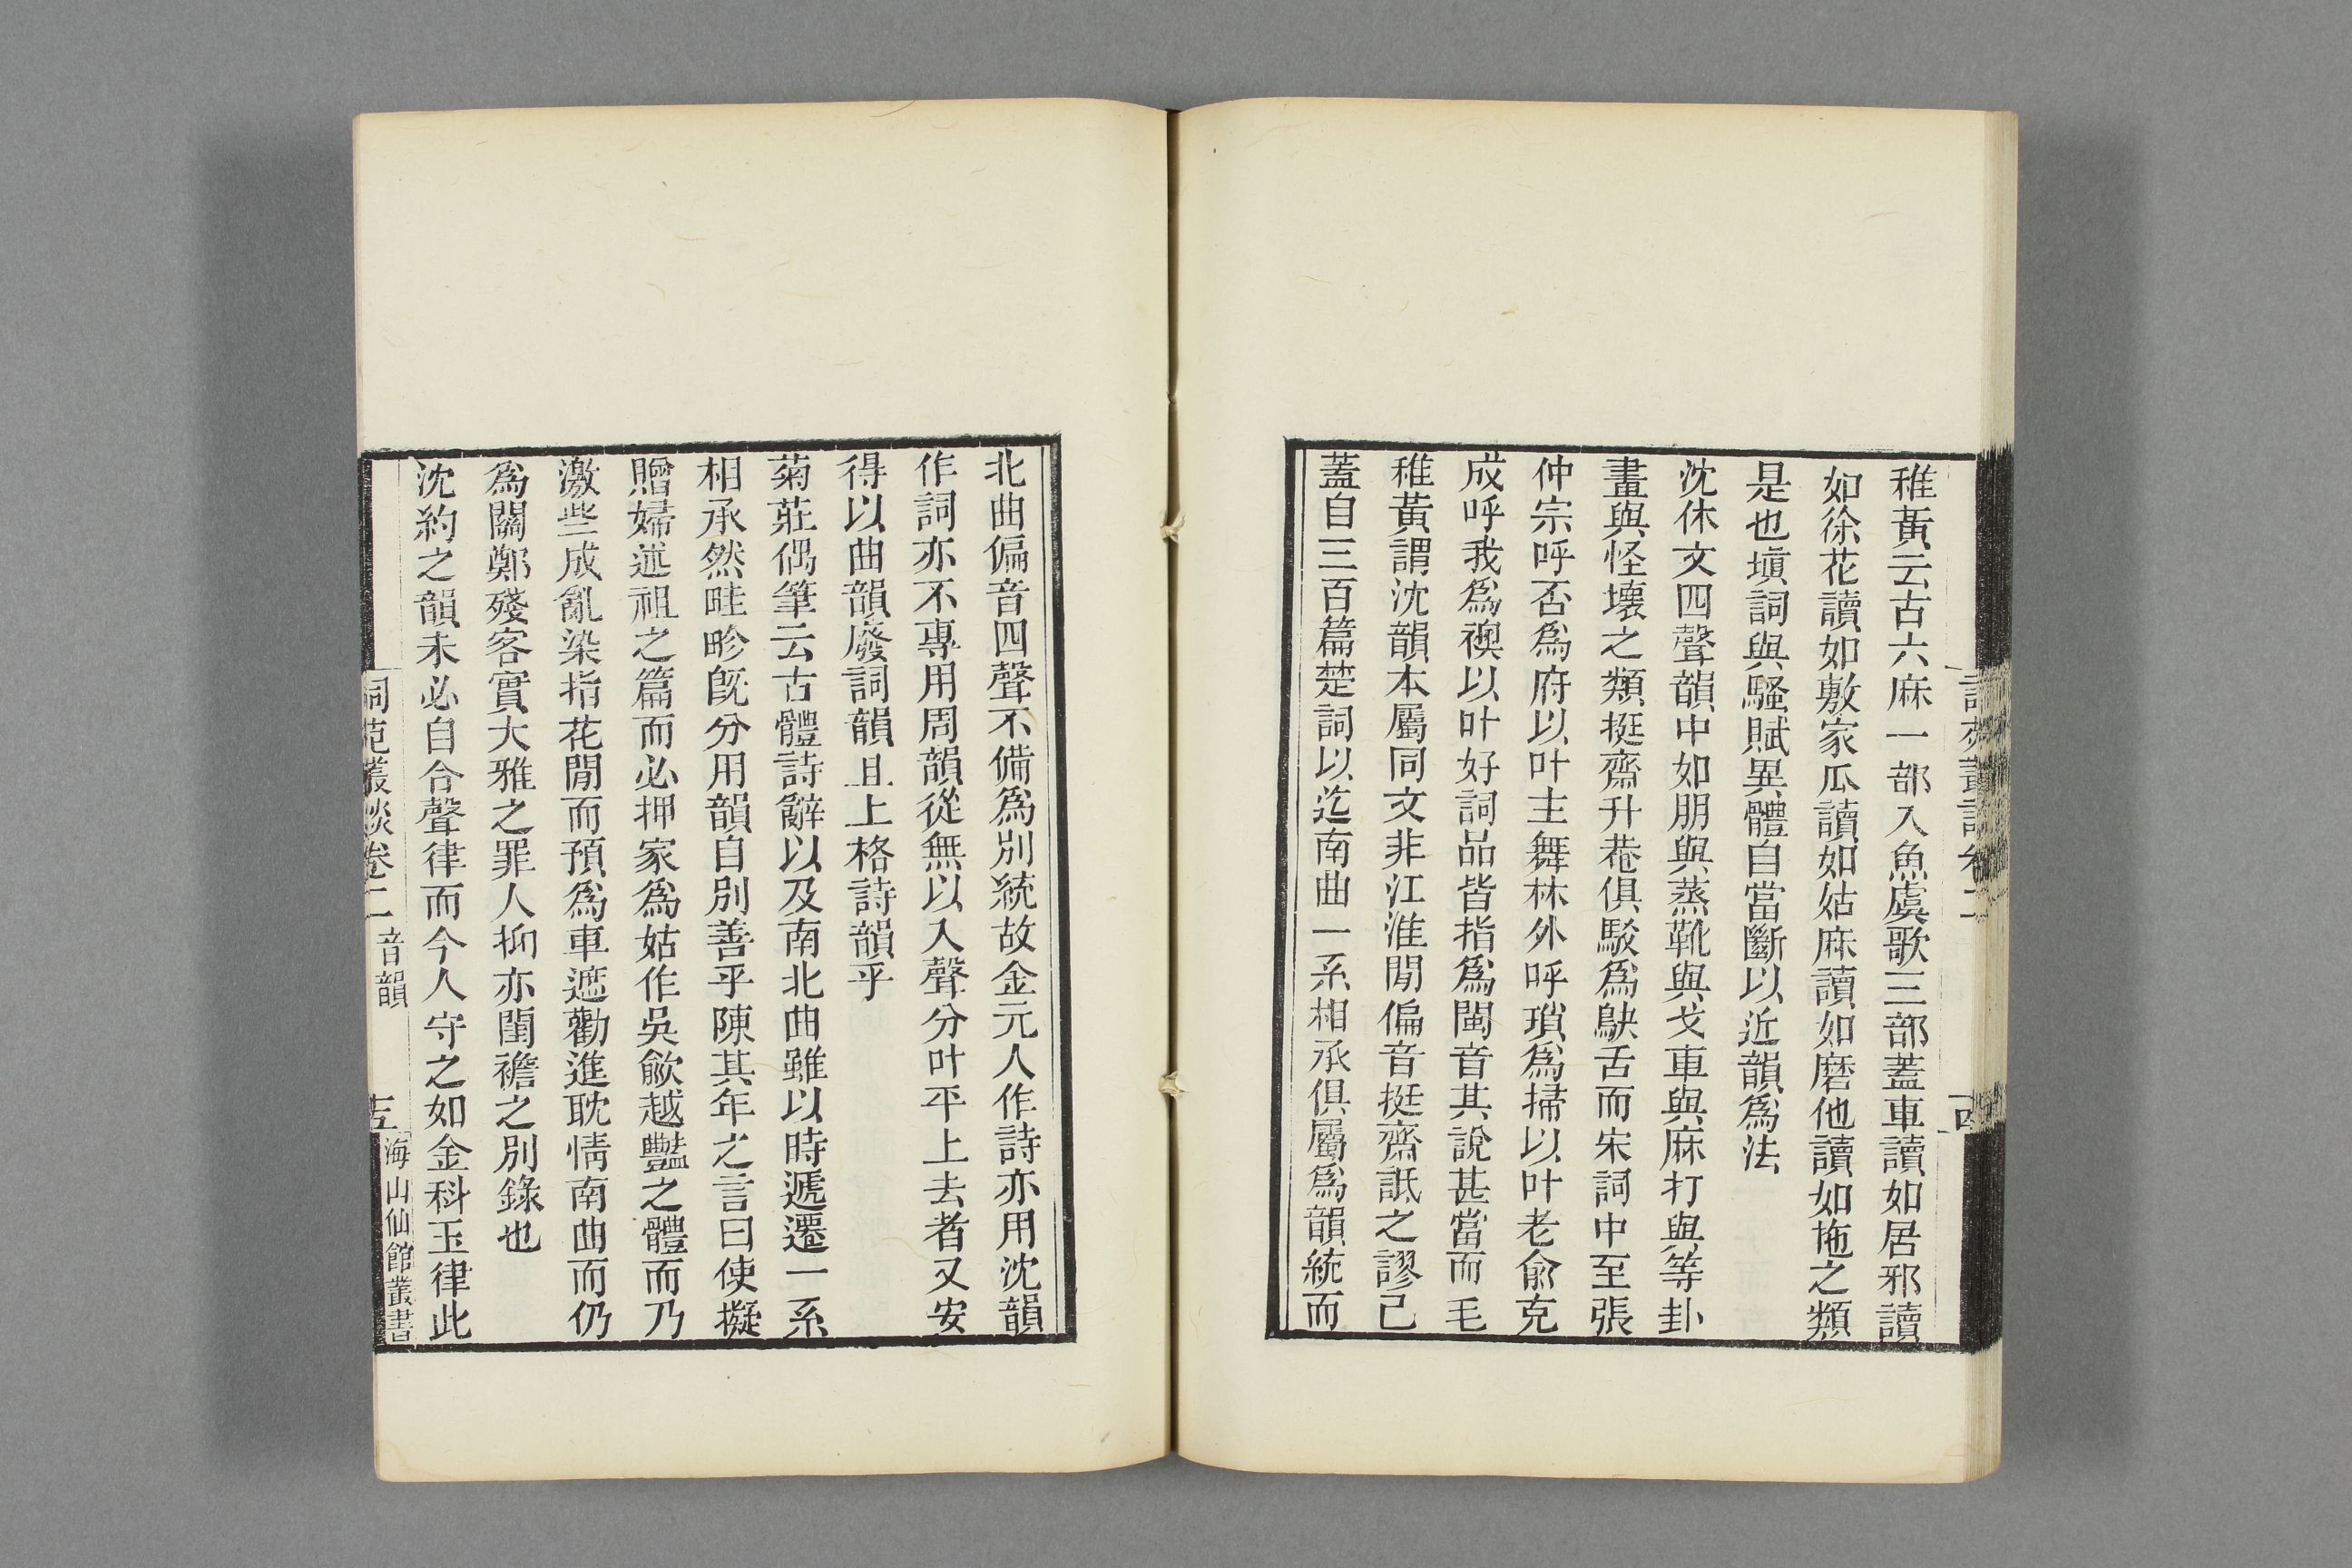 稚黃云古六麻一部入魚虞歌三部蓋車讀如居邪讀
如徐花讀如敷家瓜讀如姑麻讀如磨他讀如拖之類
是也塡詞與騷賦異體自當斷以近韻爲法
沈休文四聲韻中如朋與蒸靴與戈車與麻打與等卦
畫與怪壞之類挺齋升菴俱駁爲鴃舌而宋詞中至張
仲宗呼否爲府以叶主舞林外呼瑣爲掃以叶老俞克
成呼我爲襖以叶好詞品皆指爲閩音其說甚當而毛
稚黃謂沈韻本屬同文非江淮閒偏音挺齋詆之謬已
蓋自三百篇楚詞以迄南曲一系相承俱屬爲韻統而
北曲偏音四聲不備爲別統故金元人作詩亦用沈韻
作詞亦不專用周韻從無以入聲分叶平上去者又安
得以曲韻廢詞韻且上格詩韻乎
菊莊偶筆云古體詩辭以及南北曲雖以時遞遷一系
相承然畦畛旣分用韻自別善乎陳其年之言曰使擬
贈婦述祖之篇而必押家爲姑作吳歈越豔之體而乃
激些成亂染指花閒而預爲車遮勸進耽情南曲而仍
爲關鄭殘客實大雅之罪人抑亦閨襜之別錄也
沈約之韻未必自合聲律而今人守之如金科玉律此
詞苑叢談卷二 音韻 海山仙館叢書